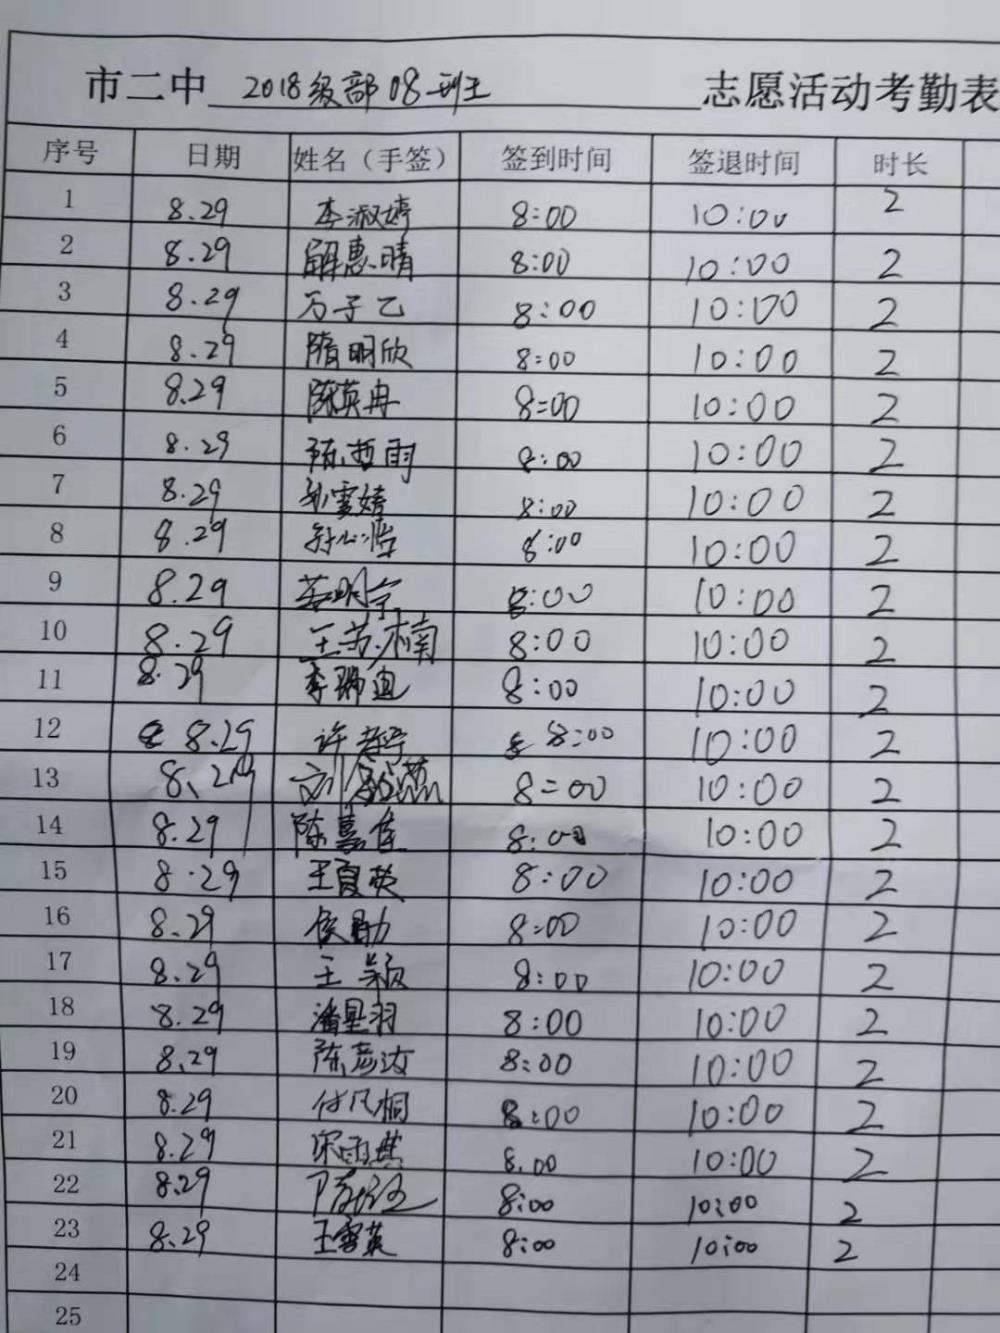 市二中 2018级部08班 志愿活动考勤表
序号 日期 姓名（手签） 签到时间 签退时间 时长
1 8.29 李淑婷 8:00 10:00 2
2 8.29 解惠晴 8:00 10:00 2
3 8.29 万子乙 8:00 10:00 2
4 8.29 隋明欣 8:00 10:00 2
5 8.29 陈英冉 8:00 10:00 2
6 8.29 陈哲雨 8:00 10:00 2
7 8.29 孙雪婷 8:00 10:00 2
8 8.29 8:00 10:00 2
9 8.29 8:00 10:00 2
10 8.29 王苏楠 8:00 10:00 2
11 8.29 李瑞迪 8:00 10:00 2
12 8.29 许 8:00 10:00 2
13 8.29 刘 8:00 10:00 2
14 8.29 陈嘉佳 8:00 10:00 2
15 8.29 王夏英 8:00 10:00 2
16 8.29 侯勋 8:00 10:00 2
17 8.29 王颖 8:00 10:00 2
18 8.29 潘星羽 8:00 10:00 2
19 8.29 陈彦汝 8:00 10:00 2
20 8.29 付凡桐 8:00 10:00 2
21 8.29 宋雨 8.00 10:00 2
22 8.29 8:00 10:00 2
23 8.29 王雪英 8:00 10:00 2
24
25